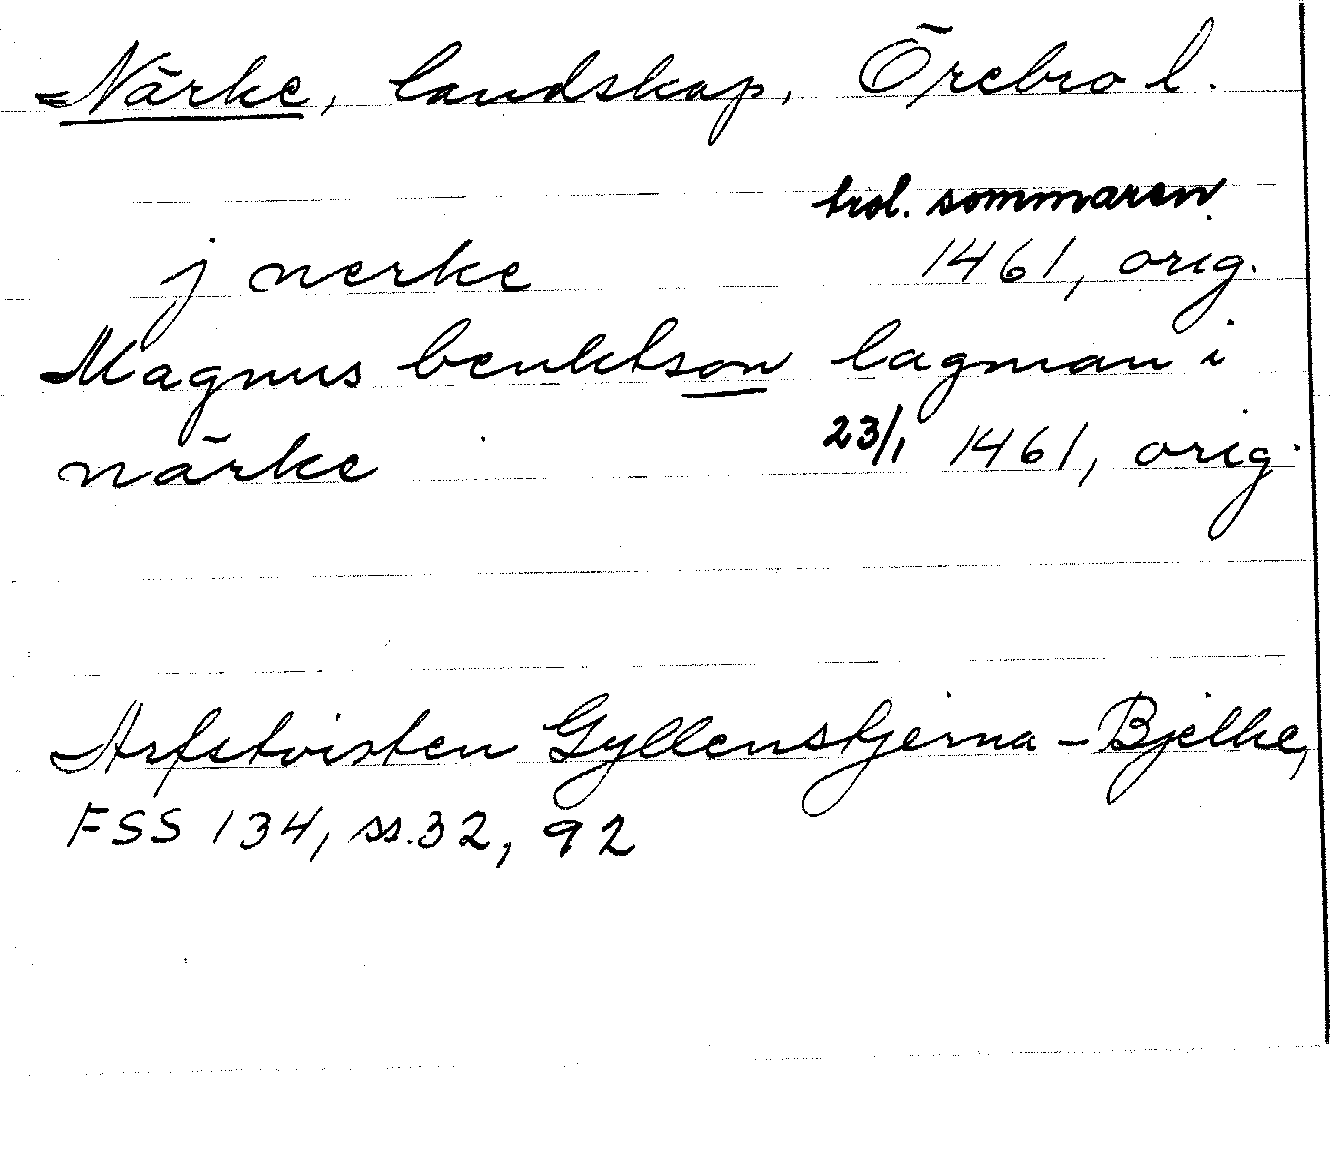 Närke, landskap, Örebro l.
trol. sommaren
j nerke 1461, orig.
Magnus benktson lagman i
närke 23/1 1461, orig.
Arfstvisten Gyllenstjerna - Bjelke,
FSS 134, ss. 32, 92